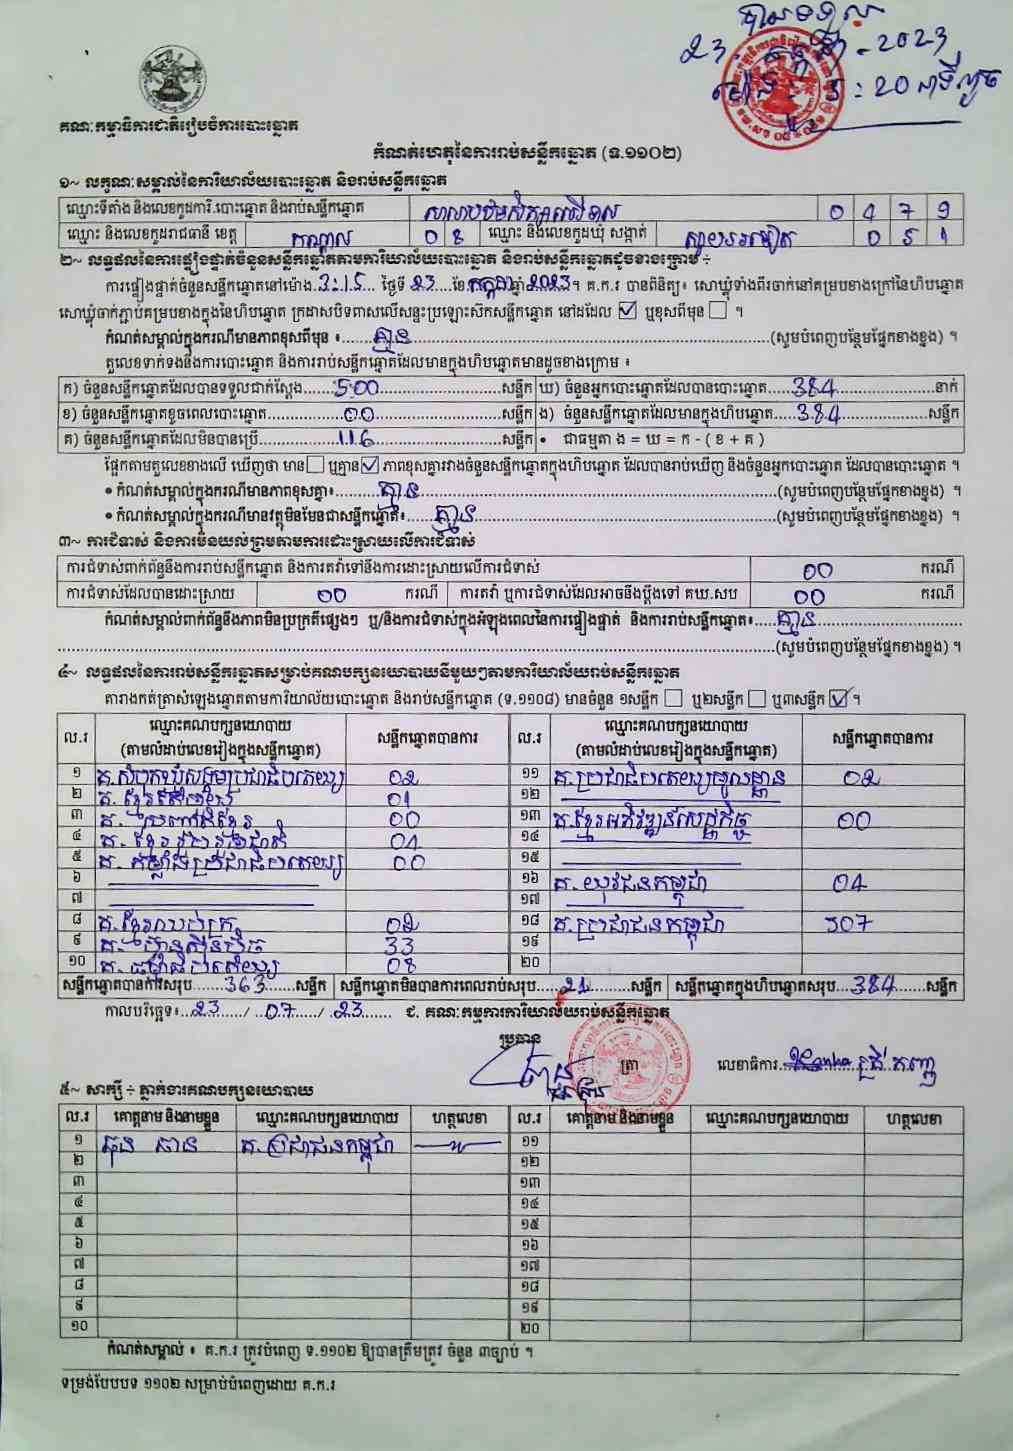 បានទទួល
23. កក្កដា - 2023
ម៉ោង 3:20 នាទីល្ងាច
គណៈកម្មាធិការជាតិរៀបចំការបោះឆ្នោត
កំណត់ហេតុនៃការរាប់សន្លឹកឆ្នោត (ទ.១១០២)
១~ លក្ខណៈសម្គាល់នៃការិយាល័យបោះឆ្នោត និងរាប់សន្លឹកឆ្នោត
ឈ្មោះទីតាំង និងលេខកូដការិ.បោះឆ្នោត និងរាប់សន្លឹកឆ្នោត 0 4 7 9
ឈ្មោះ និងលេខកូដរាជធានី ខេត្ត កណ្តាល 0 8 ឈ្មោះ និងលេខកូដឃុំ សង្កាត់ 0 5 1
២~ លទ្ធផលនៃការផ្ទៀងផ្ទាត់ចំនួនសន្លឹកឆ្នោតតាមការិយាល័យបោះឆ្នោត និងរាប់សន្លឹកឆ្នោតដូចខាងក្រោម ÷
ការផ្ទៀងផ្ទាត់ចំនួនសន្លឹកឆ្នោតនៅម៉ោង.3:15... ថ្ងៃទី 23....ខែ.កក្កដា.ឆ្នាំ 2023។ គ.ក.រ បានពិនិត្យ៖ សោឃ្លុំទាំងពីរចាក់នៅគម្របខាងក្រៅនៃហិបឆ្នោត
សោឃ្លុំចាក់ភ្ជាប់គម្របខាងក្នុងនៃហិបឆ្នោត ក្រដាសបិទពាសលើសន្ទះប្រឡោះស៊កសន្លឹកឆ្នោត នៅដដែល ☑ ឬខុសពីមុន ☐ ។
កំណត់សម្គាល់ក្នុងករណីមានភាពខុសពីមុន ៖......គ្មាន......(សូមបំពេញបន្ថែមផ្នែកខាងខ្នង) ។
តួលេខទាក់ទងនឹងការបោះឆ្នោត និងការរាប់សន្លឹកឆ្នោតដែលមានក្នុងហិបឆ្នោតមានដូចខាងក្រោម ៖
ក) ចំនួនសន្លឹកឆ្នោតដែលបានទទួលជាក់ស្តែង.....500.....សន្លឹក ឃ) ចំនួនអ្នកបោះឆ្នោតដែលបានបោះឆ្នោត.....384.....នាក់
ខ) ចំនួនសន្លឹកឆ្នោតខូចពេលបោះឆ្នោត.....00.....សន្លឹក ង) ចំនួនសន្លឹកឆ្នោតដែលមានក្នុងហិបឆ្នោត.....384.....សន្លឹក
គ) ចំនួនសន្លឹកឆ្នោតដែលមិនបានប្រើ.....116.....សន្លឹក • ជាធម្មតា ង = ឃ = ក - ( ខ + គ )
ផ្អែកតាមតួលេខខាងលើ ឃើញថា មាន☐ ឬគ្មាន☑ ភាពខុសគ្នារវាងចំនួនសន្លឹកឆ្នោតក្នុងហិបឆ្នោត ដែលបានរាប់ឃើញ និងចំនួនអ្នកបោះឆ្នោត ដែលបានបោះឆ្នោត ។
• កំណត់សម្គាល់ក្នុងករណីមានភាពខុសគ្នា៖......គ្មាន......(សូមបំពេញបន្ថែមផ្នែកខាងខ្នង) ។
• កំណត់សម្គាល់ក្នុងករណីមានវត្ថុមិនមែនជាសន្លឹកឆ្នោត៖......គ្មាន......(សូមបំពេញបន្ថែមផ្នែកខាងខ្នង) ។
៣~ ការជំទាស់ និងការមិនយល់ព្រមតាមការដោះស្រាយលើការជំទាស់
ការជំទាស់ពាក់ព័ន្ធនឹងការរាប់សន្លឹកឆ្នោត និងការតវ៉ាទៅនឹងការដោះស្រាយលើការជំទាស់ 00 ករណី
ការជំទាស់ដែលបានដោះស្រាយ 00 ករណី ការតវ៉ា ឬការជំទាស់ដែលអាចនឹងប្តឹងទៅ គឃ.សប 00 ករណី
កំណត់សម្គាល់ពាក់ព័ន្ធនឹងភាពមិនប្រក្រតីផ្សេងៗ ឬ/និងការជំទាស់ក្នុងអំឡុងពេលនៃការផ្ទៀងផ្ទាត់ និងការរាប់សន្លឹកឆ្នោត៖.....គ្មាន.....
(សូមបំពេញបន្ថែមផ្នែកខាងខ្នង) ។
៤~ លទ្ធផលនៃការរាប់សន្លឹកឆ្នោតសម្រាប់គណបក្សនយោបាយនីមួយៗតាមការិយាល័យរាប់សន្លឹកឆ្នោត
តារាងកត់ត្រាសំឡេងឆ្នោតតាមការិយាល័យបោះឆ្នោត និងរាប់សន្លឹកឆ្នោត (ទ.១១០៨) មានចំនួន ១សន្លឹក ☐ ឬ២សន្លឹក ☐ ឬ៣សន្លឹក ☑ ។
ល.រ ឈ្មោះគណបក្សនយោបាយ (តាមលំដាប់លេខរៀងក្នុងសន្លឹកឆ្នោត) សន្លឹកឆ្នោតបានការ ល.រ ឈ្មោះគណបក្សនយោបាយ (តាមលំដាប់លេខរៀងក្នុងសន្លឹកឆ្នោត) សន្លឹកឆ្នោតបានការ
១ គ.សំបុកឃ្មុំសង្គមប្រជាធិបតេយ្យ 02 ១១ គ.ប្រជាធិបតេយ្យមូលដ្ឋាន 02
២ 01 ១២
៣ 00 ១៣ គ.ខ្មែរអភិវឌ្ឍន៍សេដ្ឋកិច្ច 00
៤ គ. ខ្មែររួបរួមជាតិ ១៤
៥ គ. កម្លាំងប្រជាធិបតេយ្យ 00 ១៥
៦ ១៦ គ. យុវជនកម្ពុជា 04
៧ ១៧
៨ 02 ១៨ គ.ប្រជាជនកម្ពុជា 307
៩ គ. ហ៊្វុនស៊ិនប៉ិច 33 ១៩
១០ គ. ធម្មាធិបតេយ្យ 08 ២០
សន្លឹកឆ្នោតបានការសរុប.....363.....សន្លឹក សន្លឹកឆ្នោតមិនបានការពេលរាប់សរុប.....21.....សន្លឹក សន្លឹកឆ្នោតក្នុងហិបឆ្នោតសរុប...384.....សន្លឹក
កាលបរិច្ឆេទ៖..23...../ ..07...../ .23..... ជ. គណៈកម្មការការិយាល័យរាប់សន្លឹកឆ្នោត
ប្រធាន
ត្រា លេខាធិការ
៥~ សាក្សី ÷ ភ្នាក់ងារគណបក្សនយោបាយ
ល.រ គោត្តនាម និងនាមខ្លួន ឈ្មោះគណបក្សនយោបាយ ហត្ថលេខា ល.រ គោត្តនាម និងនាមខ្លួន ឈ្មោះគណបក្សនយោបាយ ហត្ថលេខា
១ គ.ប្រជាជនកម្ពុជា ១១
២ ១២
៣ ១៣
៤ ១៤
៥ ១៥
៦ ១៦
៧ ១៧
៨ ១៨
៩ ១៩
១០ ២០
កំណត់សម្គាល់ ៖ គ.ក.រ ត្រូវបំពេញ ទ.១១០២ ឱ្យបានត្រឹមត្រូវ ចំនួន ៣ច្បាប់ ។
ទម្រង់បែបបទ ១១០២ សម្រាប់បំពេញដោយ គ.ក.រ